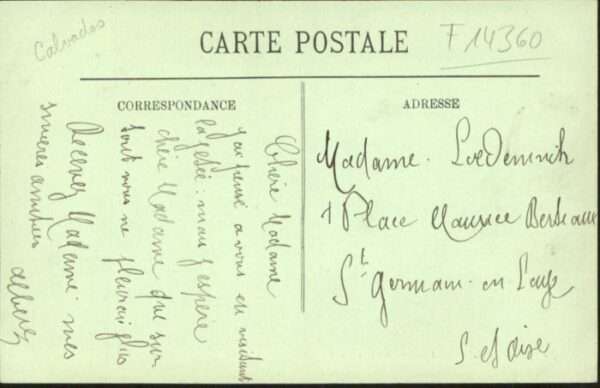 Calvados
CARTE POSTALE
F 14360
CORRESPONDANCE
Chère Madame
j'ai pensé a vous en visitant
mais j'espère
chère Madame que sur
vous ne pleurai plus
Recevez Madame mes
sincères amitiés
ADRESSE
Madame
1 Place Maurice Berteaux
St Germain en Laye
S. et Oise